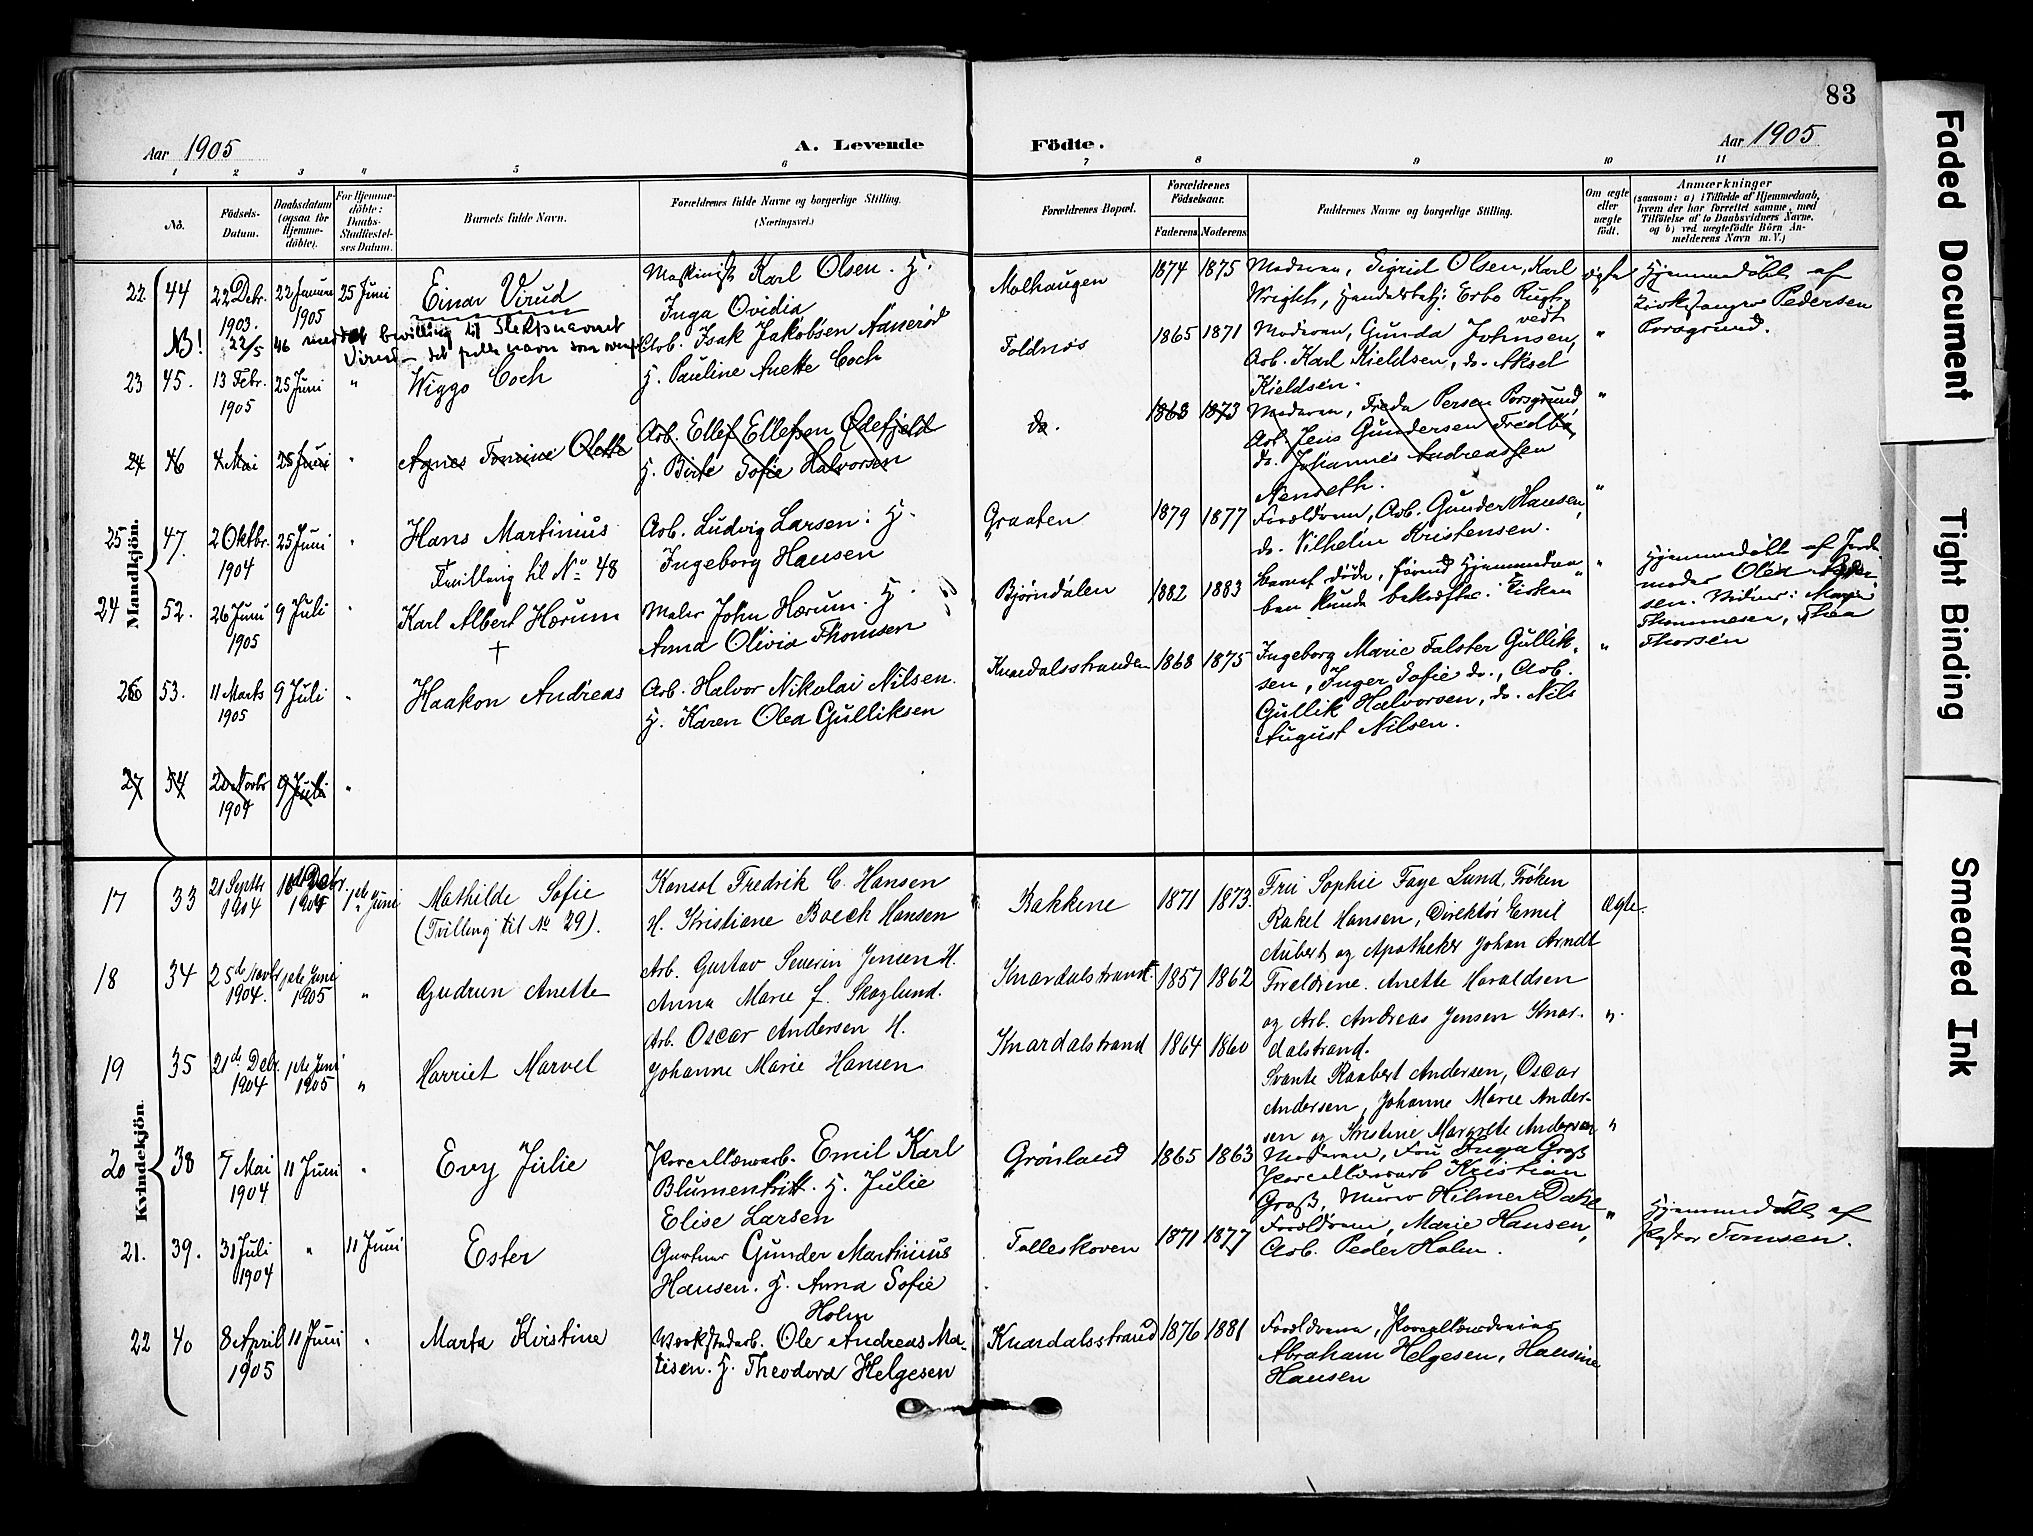 83
Aar 1905
A. Levende
Födte.
Aar 1905
1 2 3 4 5 6 7 8 9 10 11
No.
Födsels-
Datum.
Daabsdatum
(ogsaa for
Hjemme-
döbte).
For Hjemme-
döbte:
Daabs-
Stadfæstel-
ses Datum.
Barnets fulde Navn.
Forældrenes fulde Navne og borgerlige Stilling.
(Næringsvei.)
Forældrenes Bopæl.
Forældrenes
Födselsaar.
Faderens Moderens
Faddernes Navne og borgerlige Stilling.
Om ægte
eller
uægte
födt.
Anmærkninger
(saasom: a) i Tilfælde af Hjemmedaab,
hvem der har forrettet samme, med
Tilföielse af to Daabsvidners Navne,
og b) ved uægtefödte Börn An-
melderens Navn m. V.)
Mandkjön.
22. 44 22 Debr. 1903. 22 Januar 1905 25 Juni
Einar Virud
Maskinist Karl Olsen. H.
Inga Ovidia
Molhaugen
1874 1875
Moderen, Sigrid Olsen, Karl
Wright, Handelsbetj:
ægte
Hjemmedöbt af
Kirkesanger Pedersen
Porsgrund.
NB! 22/5 46 meddelt bevilling til slektsnavnet
Virud - det fulle navn som
23 45. 13 Febr. 1905 25 Juni "
Wiggo Coch
Arb. Isak Jakobsen
H. Pauline Anette Coch
Toldnes
1865 1871
Moderen, Gunda Johnsen,
Arb. Karl Kieldsen, do. Aksel
Kieldsen.
"
24 46 4 Mai 25 Juni "
Agnes Tomine Olette
Arb. Ellef Ellefsen Ødefjeld
H. Birte Sofie Halvorsen
do.
1868 1873
Moderen, Freda Persen Porsgrund
Arb. Jens Gundersen
do. Johannes Andreassen
Nenseth.
"
25, 47. 2 Oktbr. 1904 25 Juni "
Hans Martinius
Tvilling til No 48
Arb. Ludvig Larsen: H.
Ingeborg Hansen
Graaten
1879 1877
Forældrene, Arb. Gunder Hansen,
do. Vilhelm Kristensen.
"
24 52. 26 Juni 1905 9 Juli "
Karl Albert Hærum
+
Maler John Hærum. H.
Anna Olivia Thomsen
Bjørndalen
1882 1883
Barnet døde, førend Hjemmedaa
ben kunde bekræftes i Kirken
"
Hjemmedöbt af Jorde
moder Olea
sen. Vidner:
Thommesen, Thea
Thorsen
26 53. 11 Marts 1905 9 Juli "
Haakon Andreas
Arb. Halvor Nikolai Nilsen.
H. Karen Olea Gulliksen
Knardalsstranden
1868 1875
Ingeborg Marie Falster Gullik-
sen, Inger Sofie do., Arb.
Gullik Halvorsen, do. Nils
August Nilsen.
"
27 54 20 Novbr 1904 9 Juli "
Kvindekjön.
17 33 21 Septbr 1904 1905 1ste Juni
Mathilde Sofie
(Tvilling til No 29).
Konsul Fredrik C. Hansen
H. Kristiane Boeck Hansen
Bakkene
1871 1873.
Fru Sophie Faye Lund, Frøken
Rakel Hansen, Direktør Emil
Aubert og Apotheker Johan Arndt
Ægte.
18 34 25de Novbr 1904. 1ste Juni 1905 "
Gudrun Anette
Arb. Gustav Severin Jensen H.
Anna Marie f. Skoglund.
Knardalstrand.
1857 1862
Forældrene. Anette Haraldsen
og Arb. Andreas Jensen Knar-
dalstrand.
"
19 35 21de Debr. 1904 1ste Juni 1905 "
Harriet Marvel
Arb. Oscar Andersen H.
Johanne Marie Hansen
Knardalstrand
1864 1860
Svante Raabert Andersen, Oscar
Andersen, Johanne Marie Ander-
sen og Kristine Margrete Andersen
"
20 38 7 Mai 1904 11 Juni "
Evy Julie
Porcellænsarb. Emil Karl
Blumentritt. H. Julie
Elise Larsen
Grönland
1865 1863
Moderen, Fru Inga Groß
Porcellænsarb Kristian
Groß, Murer Hilmer
21. 39. 31 Juli 1904 " 11 Juni
Ester
Gartner Gunder Martinius
Hansen. H. Anna Sofie
Holm
Folleskoven
1871 1877
Forældrene, Marie Hansen,
Arb. Peder Holm.
"
Hjemmedöbt af
Pastor Tomsen.
22 40 8 April 1905 11 Juni "
Marta Kristine
Værkstedarb. Ole Andreas Ma-
tisen. H. Theodora Helgesen
Knardalsstrand
1876 1881
Forældrene, Porcellænsdreier
Abraham Helgesen, Hansine
Hansen
Faded Document
Tight Binding
Smeared Ink